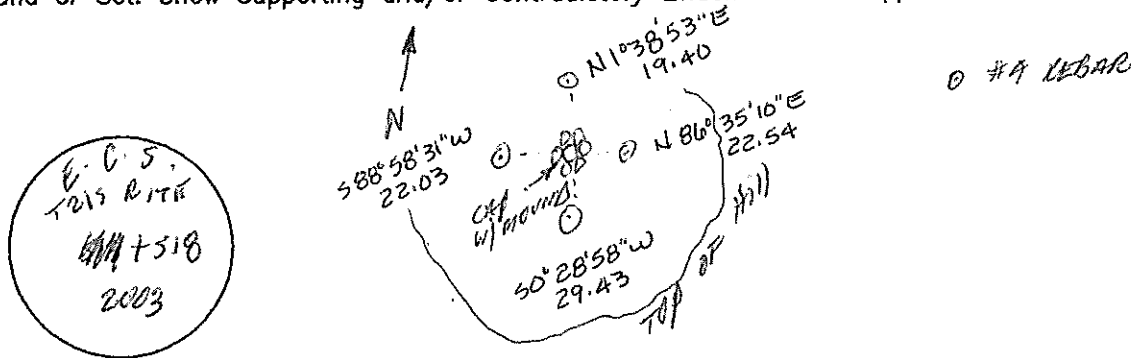 and or Set. Show Supporting and/or Contradictory
N
N1°38'53"E
19.40
⊙ #4 REBAR
S88°58'31"W
22.03
N 86°35'10"E
22.54
CAP
W/ MOUND
S0°28'58"W
29.43
TOP OF Hill
E. C. S.
T21S R17E
+518
2003